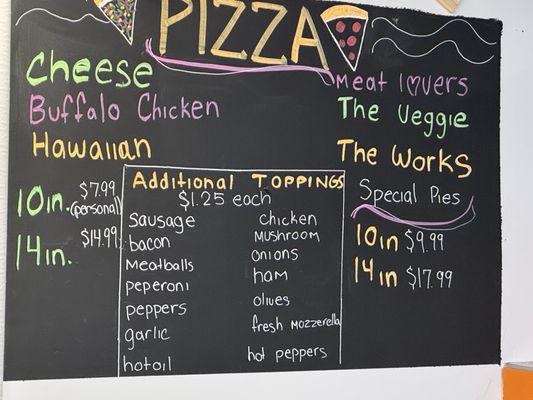 PIZZA
Cheese
Buffalo Chicken
Hawaiian
10in. $7.99
(personal)
14in. $14.99
Additional TOPPINGS
$1.25 each
Sausage
bacon
Meatballs
peperoni
peppers
garlic
hotoil
chicken
Mushroom
onions
ham
olives
fresh Mozzerella
hot peppers
Meat l♡vers
The Veggie
The Works
Special Pies
10in $9.99
14in $17.99